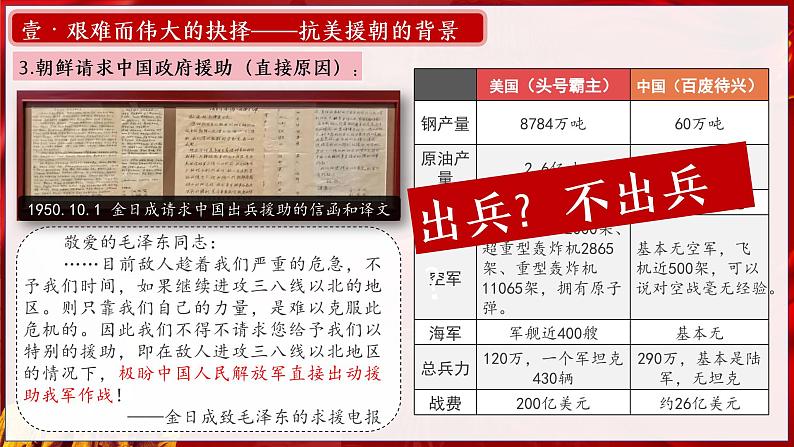 壹·艰难而伟大的抉择——抗美援朝的背景
3.朝鲜请求中国政府援助（直接原因）：
1950.10.1 金日成请求中国出兵援助的信函和译文
敬爱的毛泽东同志：
……目前敌人趁着我们严重的危急，不
予我们时间，如果继续进攻三八线以北的地
区。则只靠我们自己的力量，是难以克服此
危机的。因此我们不得不请求您给予我们以
特别的援助，即在敌人进攻三八线以北地区
的情况下，极盼中国人民解放军直接出动援
助我军作战！
——金日成致毛泽东的求援电报
美国（头号霸主） 中国（百废待兴）
钢产量 8784万吨 60万吨
原油产
量
出兵？不出兵
空军
超重型轰炸机2865
架、重型轰炸机
11065架，拥有原子
弹。
基本无空军，飞
机近500架，可以
说对空战毫无经验。
海军 军舰近400艘 基本无
总兵力 120万，一个军坦克
430辆
290万，基本是陆
军，无坦克
战费 200亿美元 约26亿美元